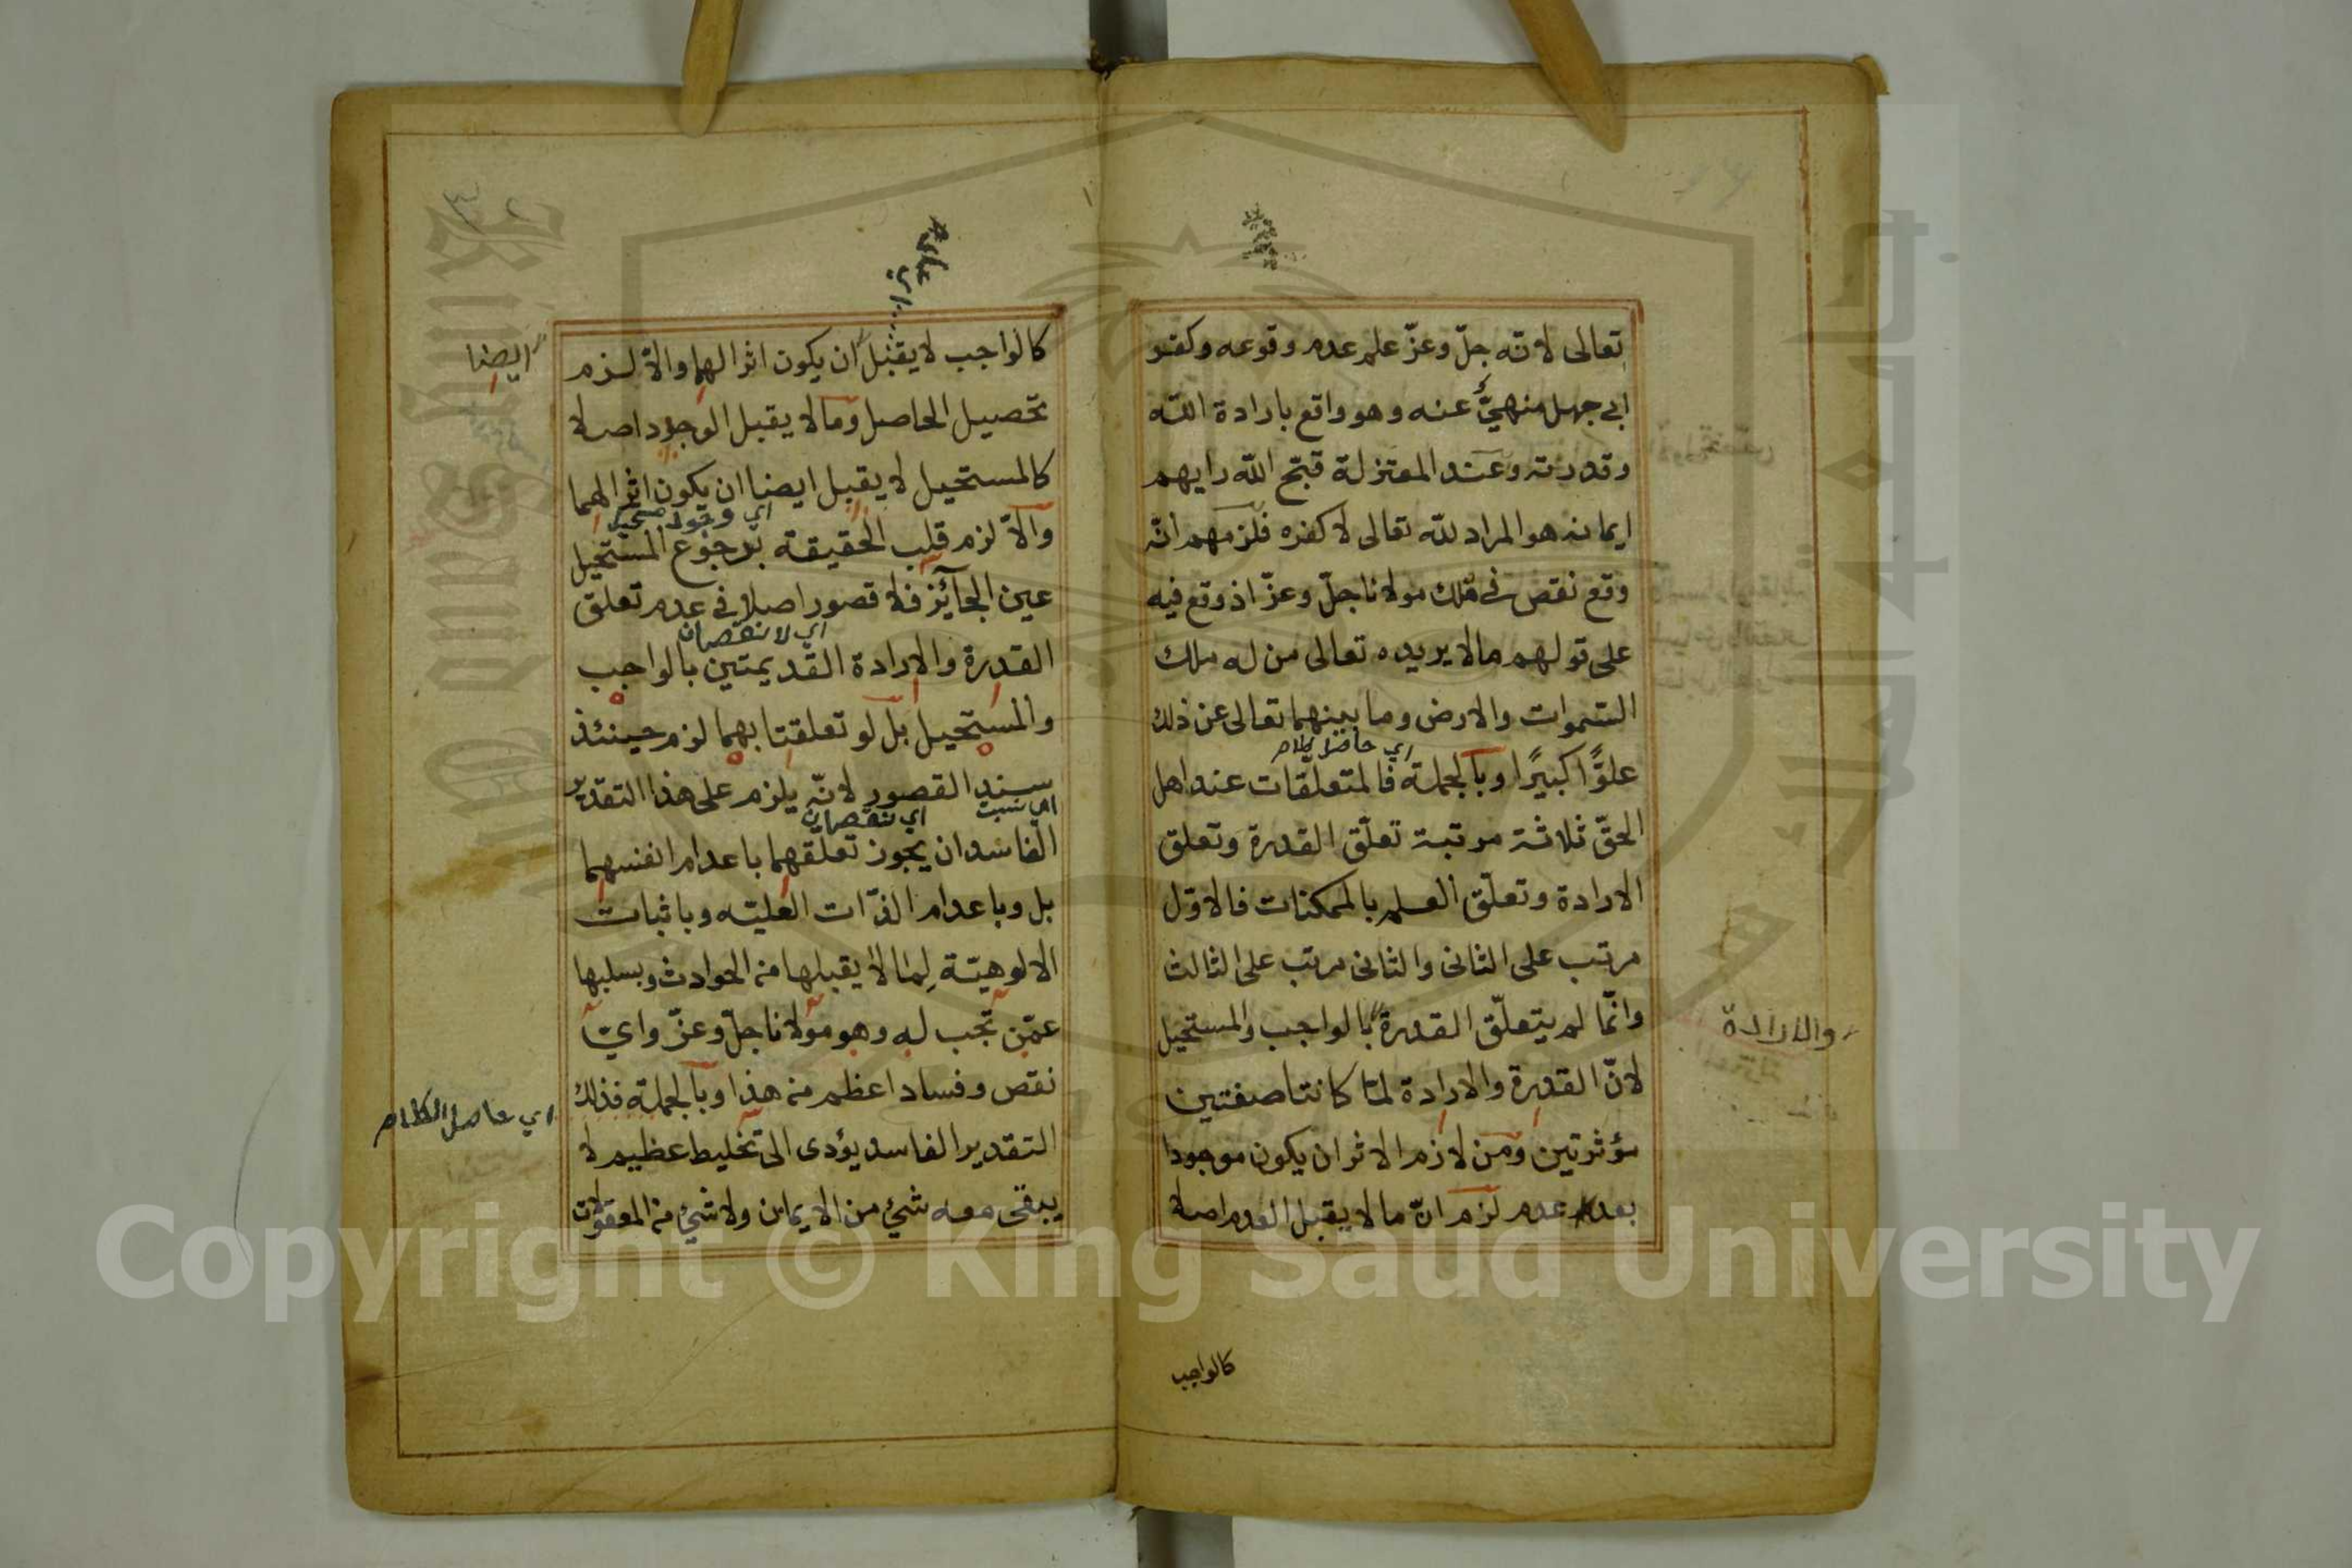 تعالى لانّه جلّ وعزّ علم عدم وقوعه وكفر
ابي جهل منهيٌّ عنه وهو واقع بارادة الله
وقدرته وعند المعتزلة قبّح الله رايهم
ايمانه هو المراد لله تعالى لا كفره فلزمهم انّه
وقع نقص في ملك مولانا جلّ وعزّ اذ وقع فيه
على قولهم ما لا يريده تعالى من له ملك
السّموات والارض وما بينهما تعالى عن ذلك
اي حاصل الكلام
علوًّا كبيرًا وبالجملة فالمتعلّقات عند اهل
الحقّ ثلاثة مرتبة تعلّق القدرة وتعلق
الارادة وتعلّق العلم بالممكنات فالاوّل
مرتب على الثانى والثانى مرتب على الثالث
وانّما لم يتعلّق القدرة بالواجب والمستحيل
والارادة
لانّ القدرة والارادة لمّا كانتا صفتين
مؤثرتين ومن لازم الاثر ان يكون موجودا
بعد عدم لزم انّ ما لا يقبل العدم اصلا
كالواجب
كالواجب لا يقبل ان يكون اثرا لهما والّا لزم
ايضا
تحصيل الحاصل وما لا يقبل الوجود اصلا
كالمستحيل لا يقبل ايضا ان يكون اثرا لهما
اي وجود مستحيل
والّا لزم قلب الحقيقة برجوع المستحيل
عين الجآئز فلا قصور اصلا في عدم تعلق
اي لا نقصان
القدرة والارادة القديمتين بالواجب
والمستحيل بل لو تعلقتا بهما لزم حينئذ
سند القصور لانّه يلزم على هذا التقدير
اي نسبت
اي نقصان
الفاسد ان يجوز تعلقهما باعدام انفسهما
بل وباعدام الذّات العليّه وباثبات
الالوهيّة لما لا يقبلها من الحوادث وبسلبها
عمّن تجب له وهو مولانا جلّ وعزّ وايّ
نقص وفساد اعظم من هذا وبالجملة فذلك
اي حاصل الكلام
التقدير الفاسد يؤدى الى تخليط عظيم لا
يبقى معه شيئ من الايمان ولا شيئ من المعقولات
Copyright © King Saud University